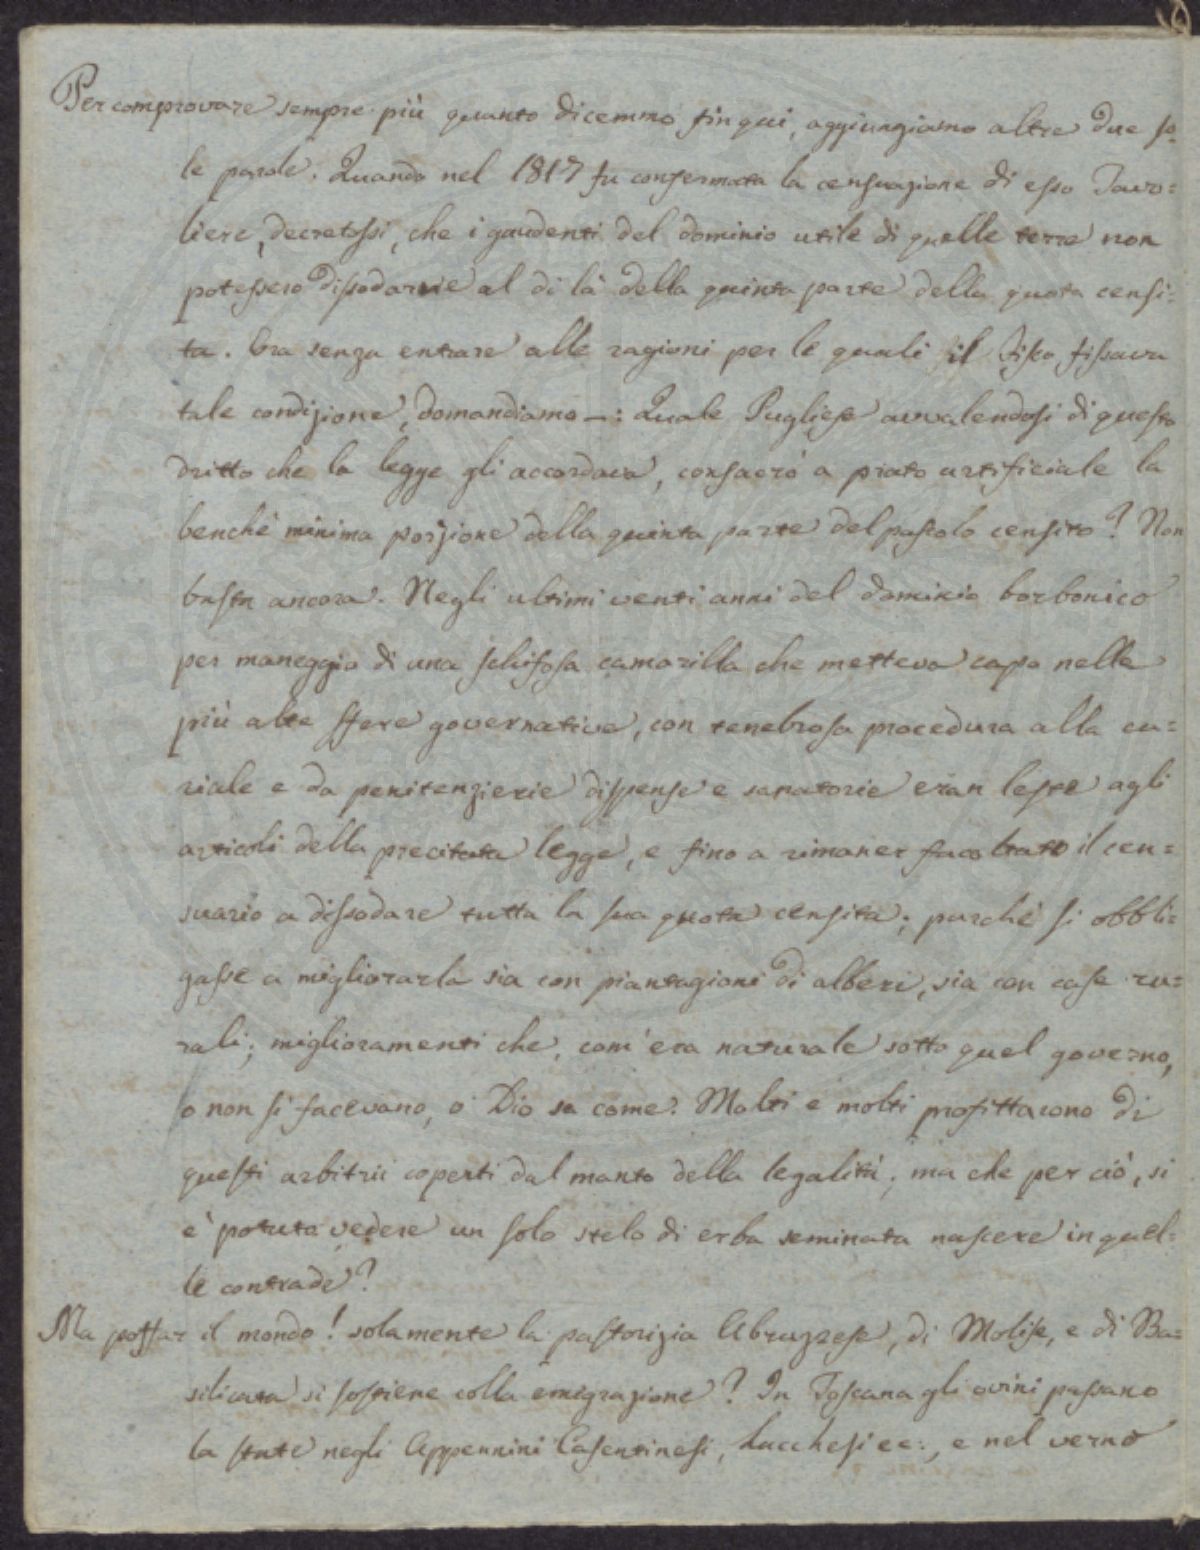 Per comprovare sempre più quanto dicemmo fin qui, aggiungiamo altre due so-
le parole. Quando nel 1817 fu confermata la censuazione di esso Tavo=
liere, decretossi, che i gaudenti del dominio utile di quelle terre non
potessero dissodarne al di là della quinta parte della quota censi=
ta. Ora senza entrare alle ragioni per le quali il Fisco fissava
tale condizione, domandiamo —: Quale Pugliese avvalendosi di questo
dritto che la legge gli accordava, consacrò a prato artificiale la
benchè minima porzione della quinta parte del pascolo censito? Non
basta ancora. Negli ultimi venti anni del dominio borbonico
per maneggio di una schifosa camarilla che metteva capo nelle
più alte sfere governative, con tenebrosa procedura alla cu=
riale e da penitenzierie dispense e sanatorie eran leste agli
articoli della precitata legge, e fino a rimaner facoltato il cen=
suario a dissodare tutta la sua quota censita; purchè si obbli=
gasse a migliorarla sia con piantagioni di alberi, sia con case ru=
rali; miglioramenti che, com'era naturale sotto quel governo,
o non si facevano, o Dio sa come. Molti e molti profittarono di
questi arbitrii coperti dal manto della legalità; ma che per ciò, si
è potuto vedere un solo stelo di erba seminata nascere in quel=
le contrade?
Ma poffar il mondo! solamente la pastorizia Abruzzese, di Molise, e di Ba=
silicata si sostiene colla emigrazione? In Toscana gli ovini passano
la state negli Appennini Casentinesi, Lucchesi ec:, e nel verno